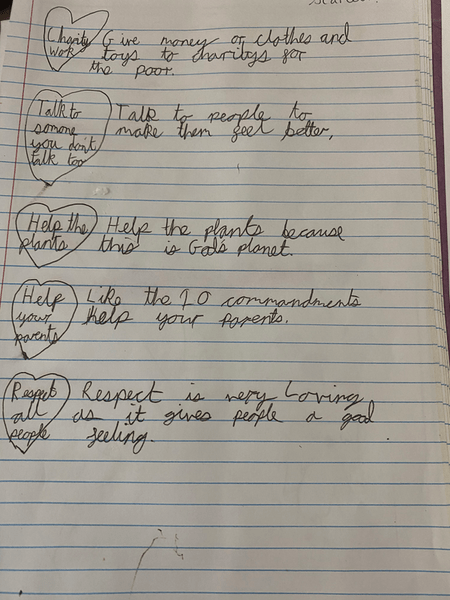 Charity
work
Give money or clothes and
toys to charitys for
the poor.
Talk to
somone
you don't
talk too
Talk to people to
make them feel better,
Help the
plants
Help the plants because
this is Gods planet.
Help
your
parents
Like the 10 commandments
help your parents.
Respect
all
people
Respect is very Loving
as it gives people a good
feeling.